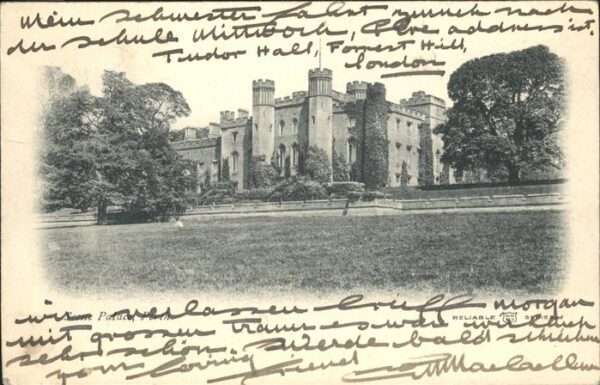 Mein schwester fahrt zurück nach
der schule Mittwoch, Ihre address ist.
Tudor Hall, Forrest Hill,
London
Scone Palace, Perth
RELIABLE SERIES
wir verlassen Cruff morgan
mit grossen traur es war wirklich
sehr schön. Werde bald schreiben
yours loving friend M Maclachlan